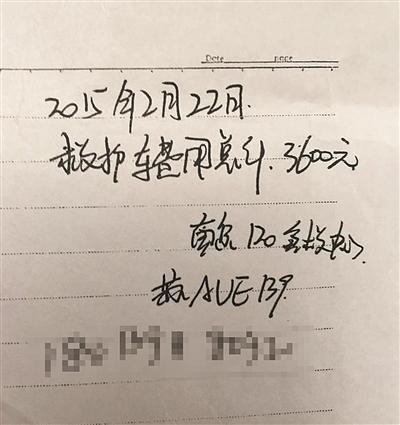 Date page
2015年2月22日.
救护车费用总计.3600元
120急救中心
AUE139